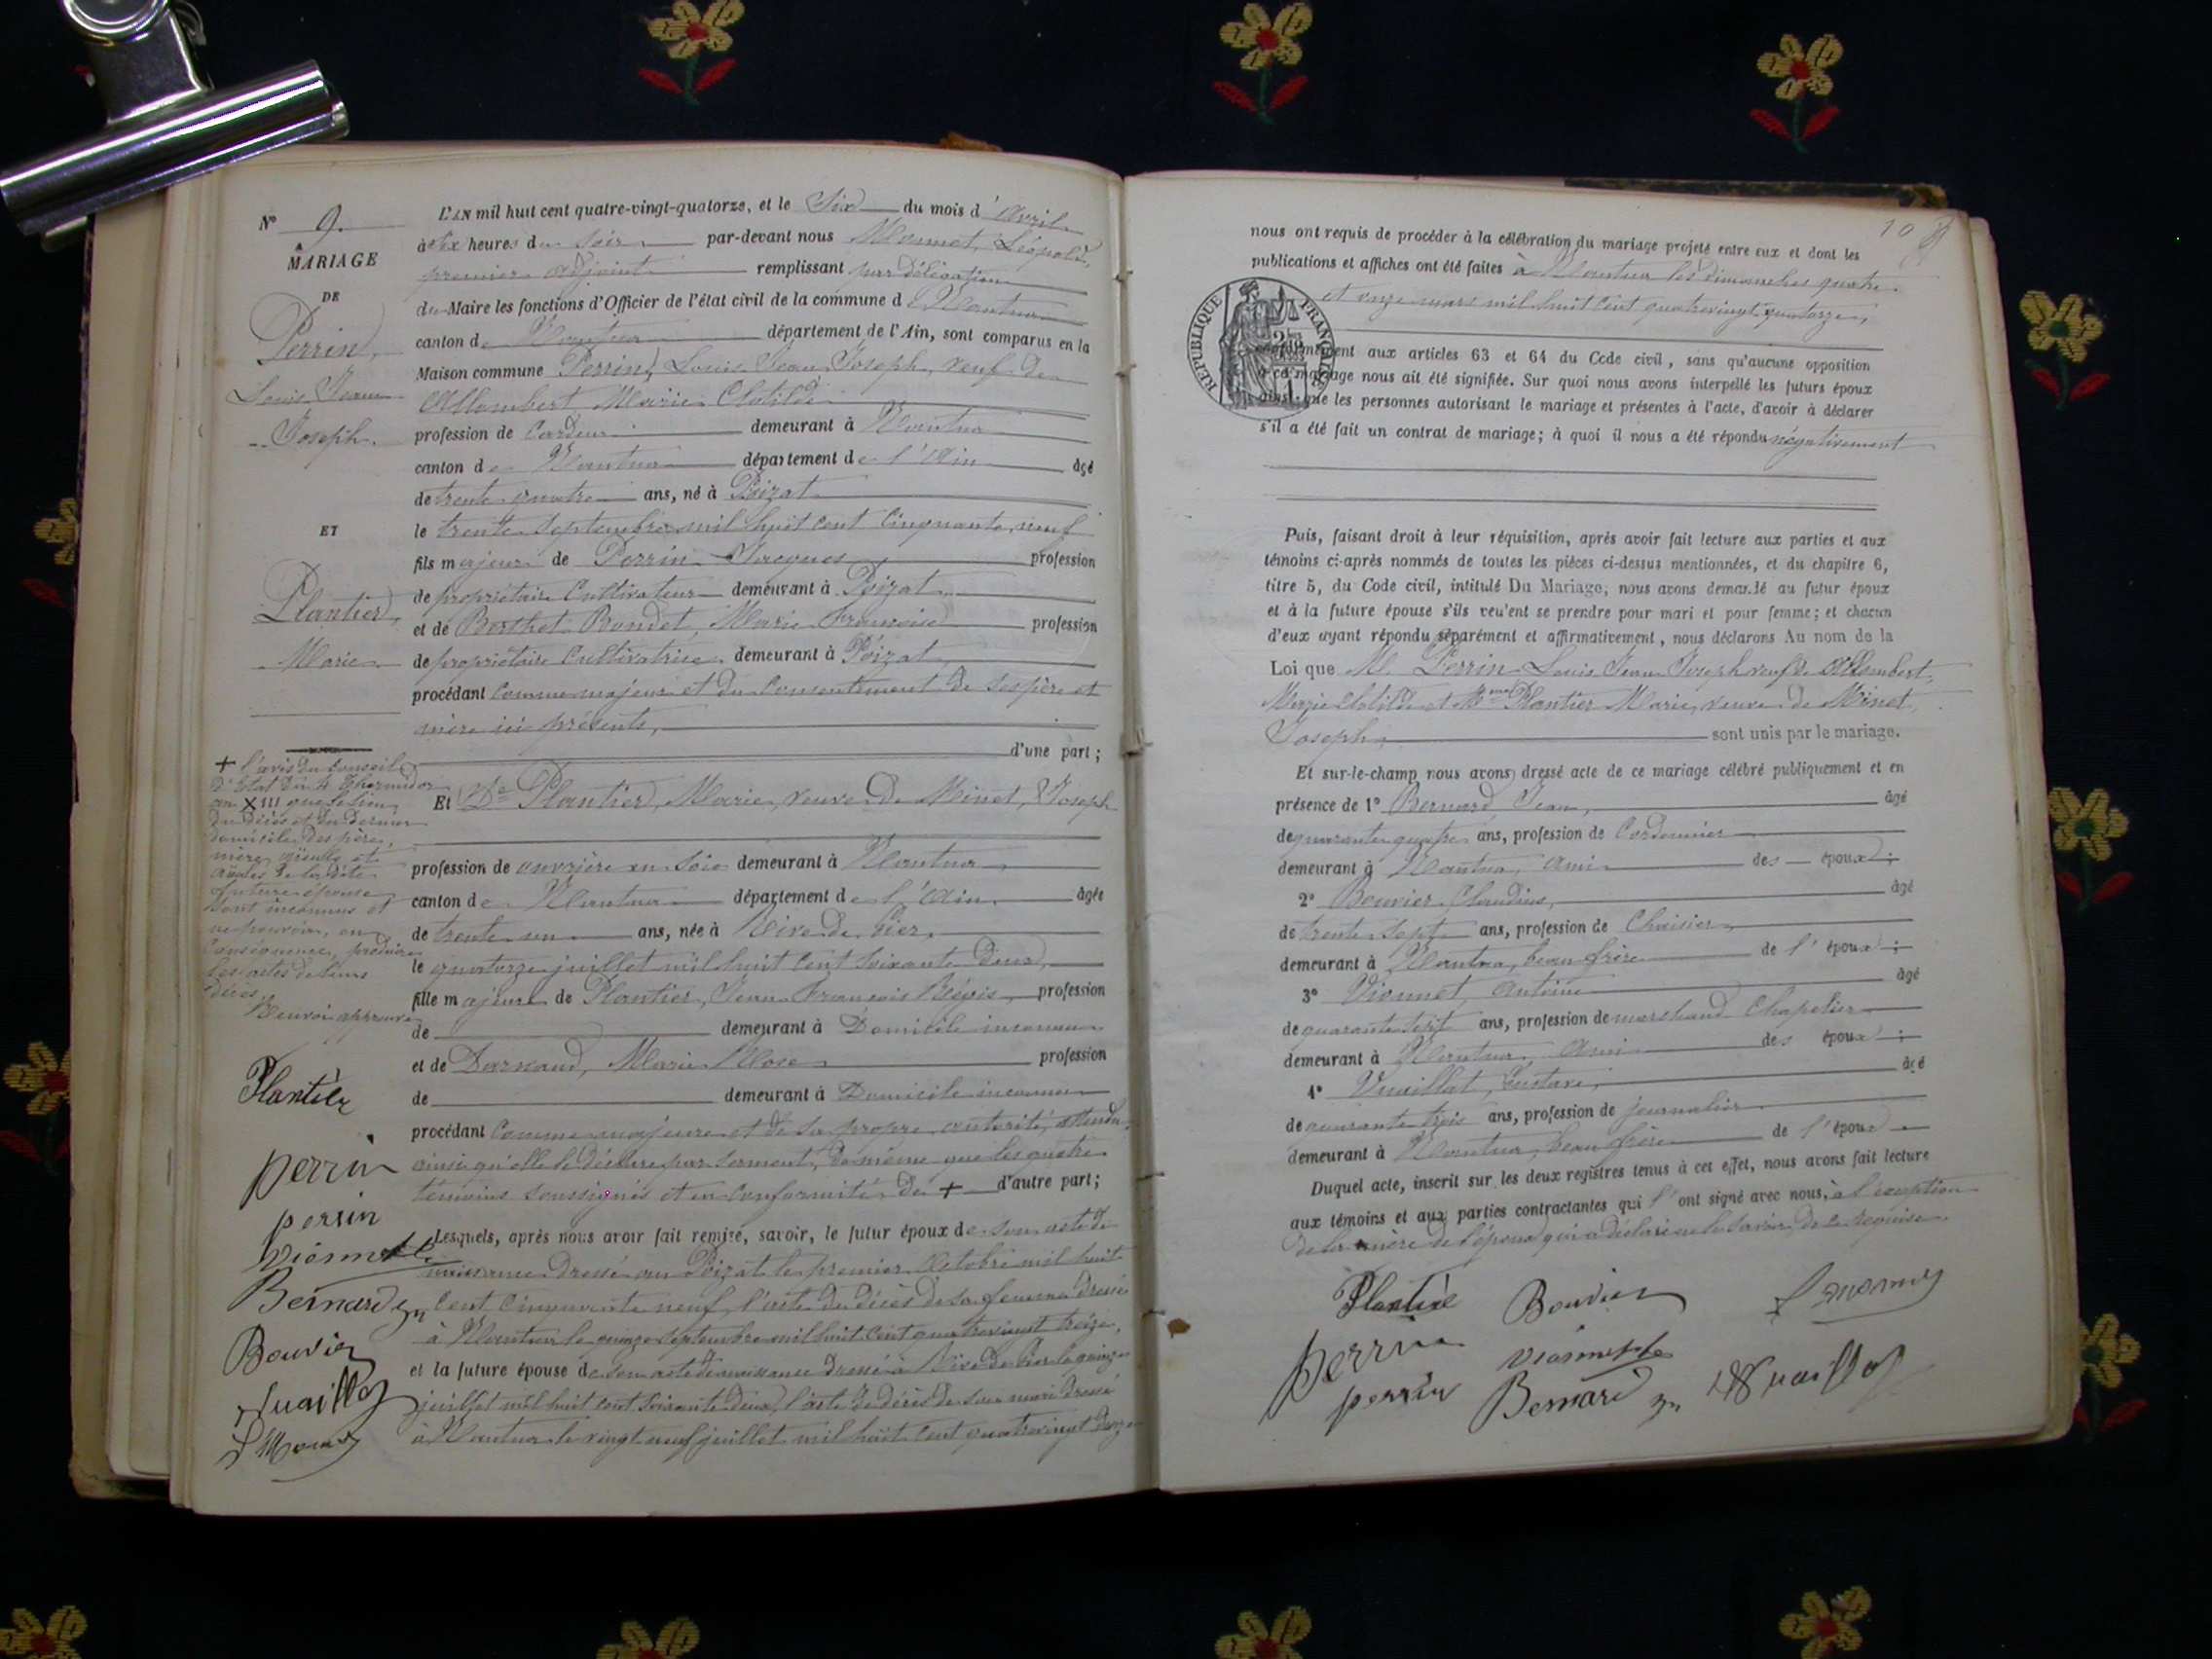 N° 9.
MARIAGE
DE
Perrin,
Louis Jean
Joseph.
ET
Plantier,
Marie
+ l'avis du Conseil
d'Etat du 4 Thermidor
an XIII que le lieu
du décès et du dernier
domicile des père,
mère, aïeuls et
aïeules de la dite
future épouse
sont inconnus et
ne pouvoir, en
conséquence, produire
les actes de leurs
décès.
Renvoi approuvé
Plantier
perrin
perrin
Vionnet
Bernard jn
Bouvier
Vuaillat
L'AN mil huit cent quatre-vingt-quatorze, et le Six du mois d'Avril
à six heures du soir par-devant nous Monnet, Léopold,
premier adjoint remplissant par délégation
du Maire les fonctions d'Officier de l'état civil de la commune de Nantua
canton de Nantua département de l'Ain, sont comparus en la
Maison commune Perrin, Louis Jean Joseph, veuf de
Allombert Marie Clotilde
profession de Cardeur demeurant à Nantua
canton de Nantua département de l'Ain âgé
de trente quatre ans, né à Poizat
le trente septembre mil huit cent cinquante neuf
fils majeur de Perrin Jacques profession
de propriétaire cultivateur demeurant à Poizat
et de Berthet Bondet, Marie Françoise profession
de propriétaire cultivatrice demeurant à Poizat
procédant comme majeur et du consentement de ses père et
mère ici présents,
d'une part;
Et De Plantier, Marie, veuve de Minet, Joseph
profession de ouvrière en soie demeurant à Nantua
canton de Nantua département de l'Ain âgée
de trente un ans, née à Rive de Gier
le quatorze juillet mil huit cent soixante deux,
fille majeure de Plantier, Jean François Régis profession
de demeurant à Domicile inconnu
et de Darnaud, Marie Rose profession
de demeurant à Domicile inconnu
procédant comme majeure et de sa propre autorité, attendu,
ainsi qu'elle le déclare par serment, de même que les quatre
témoins soussignés et en conformité de + d'autre part;
Lesquels, après nous avoir fait remise, savoir, le futur époux de son acte de
naissance dressé au Poizat le premier Octobre mil huit
cent cinquante neuf, l'acte de décès de sa femme dressé
à Nantua le quinze septembre mil huit cent quatrevingt treize,
et la future épouse de son acte de naissance dressé à Rive de Gier le quinze
juillet mil huit cent soixante deux, l'acte de décès de son mari dressé
à Nantua le vingt neuf juillet mil huit cent quatrevingt
10
nous ont requis de procéder à la célébration du mariage projeté entre eux et dont les
publications et affiches ont été faites à Nantua les dimanches quatre
et onze mars mil huit cent quatrevingt quatorze,
REPUBLIQUE FRANÇAISE
conformément aux articles 63 et 64 du Code civil, sans qu'aucune opposition
à ce mariage nous ait été signifiée. Sur quoi nous avons interpellé les futurs époux
ainsi que les personnes autorisant le mariage et présentes à l'acte, d'avoir à déclarer
s'il a été fait un contrat de mariage; à quoi il nous a été répondu négativement
Puis, faisant droit à leur réquisition, après avoir fait lecture aux parties et aux
témoins ci-après nommés de toutes les pièces ci-dessus mentionnées, et du chapitre 6,
titre 5, du Code civil, intitulé Du Mariage; nous avons demandé au futur époux
et à la future épouse s'ils veulent se prendre pour mari et pour femme; et chacun
d'eux ayant répondu séparément et affirmativement, nous déclarons Au nom de la
Loi que M. Perrin Louis Jean Joseph veuf de Allombert,
Marie Clotilde et Mme Plantier Marie, veuve de Minet,
Joseph, sont unis par le mariage.
Et sur-le-champ nous avons dressé acte de ce mariage célébré publiquement et en
présence de 1° Bernard, Jean, âgé
de quarante quatre ans, profession de Cordonnier
demeurant à Nantua, ami des époux;
2° Bouvier Claudius, âgé
de trente sept ans, profession de Chaisier
demeurant à Nantua, beau frère de l'époux;
3° Vionnet, Antoine âgé
de quarante sept ans, profession de marchand Chapelier
demeurant à Nantua, ami des époux;
4° Vuaillat, Gustave, âgé
de quarante trois ans, profession de journalier
demeurant à Nantua, beau frère de l'époux
Duquel acte, inscrit sur les deux registres tenus à cet effet, nous avons fait lecture
aux témoins et aux parties contractantes qui l'ont signé avec nous, à l'exception
de la mère de l'époux qui a déclaré ne le savoir, de ce requise.
Plantier Bouvier
perrin Vionnet
perrin Bernard jn Vuaillat